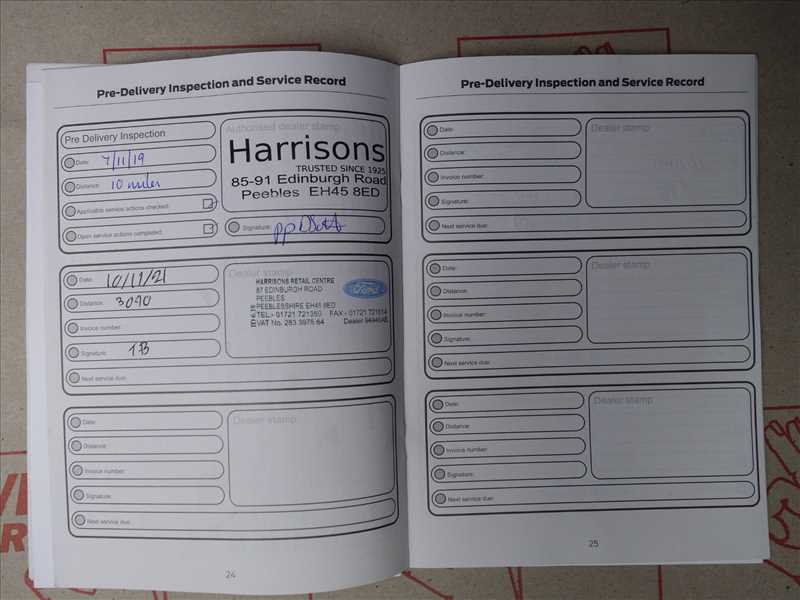 Pre-Delivery Inspection and Service Record
Pre Delivery Inspection
Date: 7/11/19
Distance: 10 miles
Applicable service actions checked:
Open service actions completed:
Authorised dealer stamp
Harrisons
TRUSTED SINCE 1925
85-91 Edinburgh Road
Peebles EH45 8ED
Signature: pp
Date: 10/11/21
Distance: 3090
Invoice number:
Signature: TB
Next service due:
Dealer stamp
HARRISONS RETAIL CENTRE
87 EDINBURGH ROAD
PEEBLES
PEEBLESSHIRE EH45 8ED
TEL:- 01721 721350 FAX:- 01721
VAT No. 283 3975 64 Dealer
Ford
Date:
Distance:
Invoice number:
Signature:
Next service due:
Dealer stamp
24
Pre-Delivery Inspection and Service Record
Date:
Distance:
Invoice number:
Signature:
Next service due:
Dealer stamp
Date:
Distance:
Invoice number:
Signature:
Next service due:
Dealer stamp
Date:
Distance:
Invoice number:
Signature:
Next service due:
Dealer stamp
25